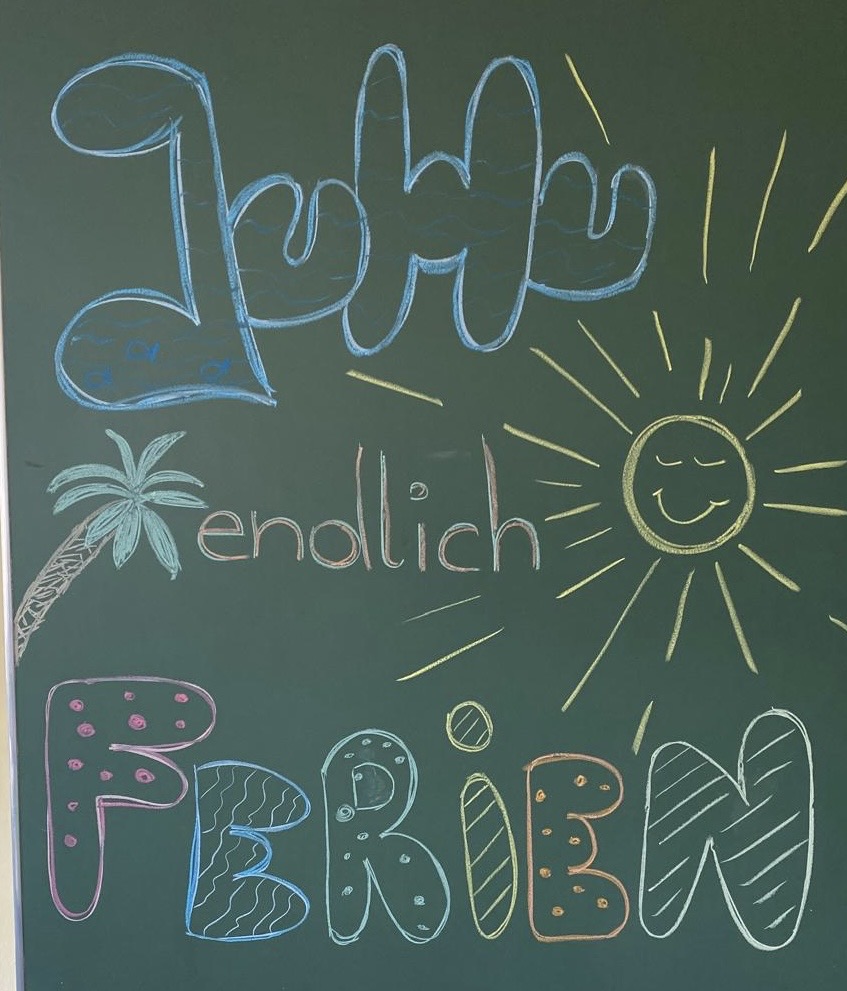 JuHu
endlich
FERiEN